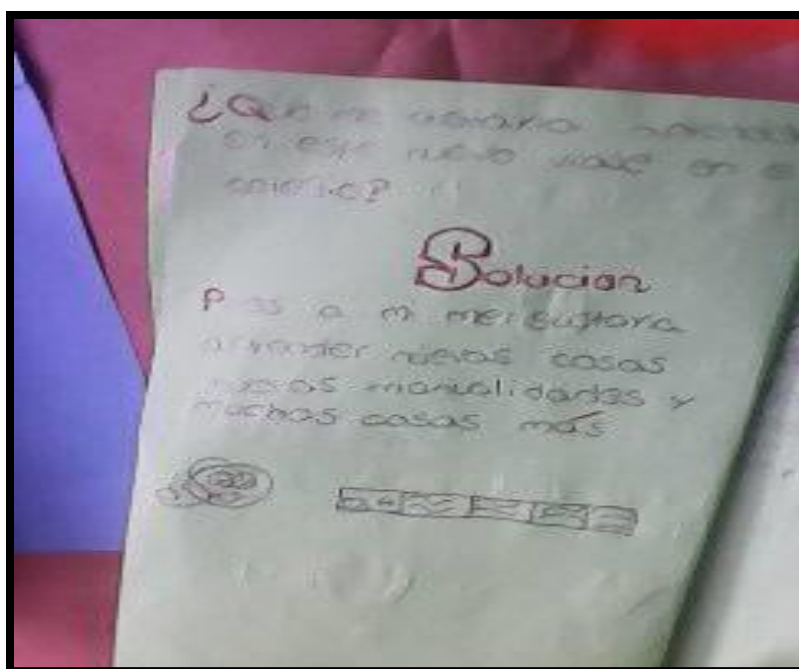 ¿Que me gustaria
en este nuevo viaje en e
Solucion
Pues a mi me gustaria
aprender nuevas cosas
nuevas manualidades y
muchas cosas más